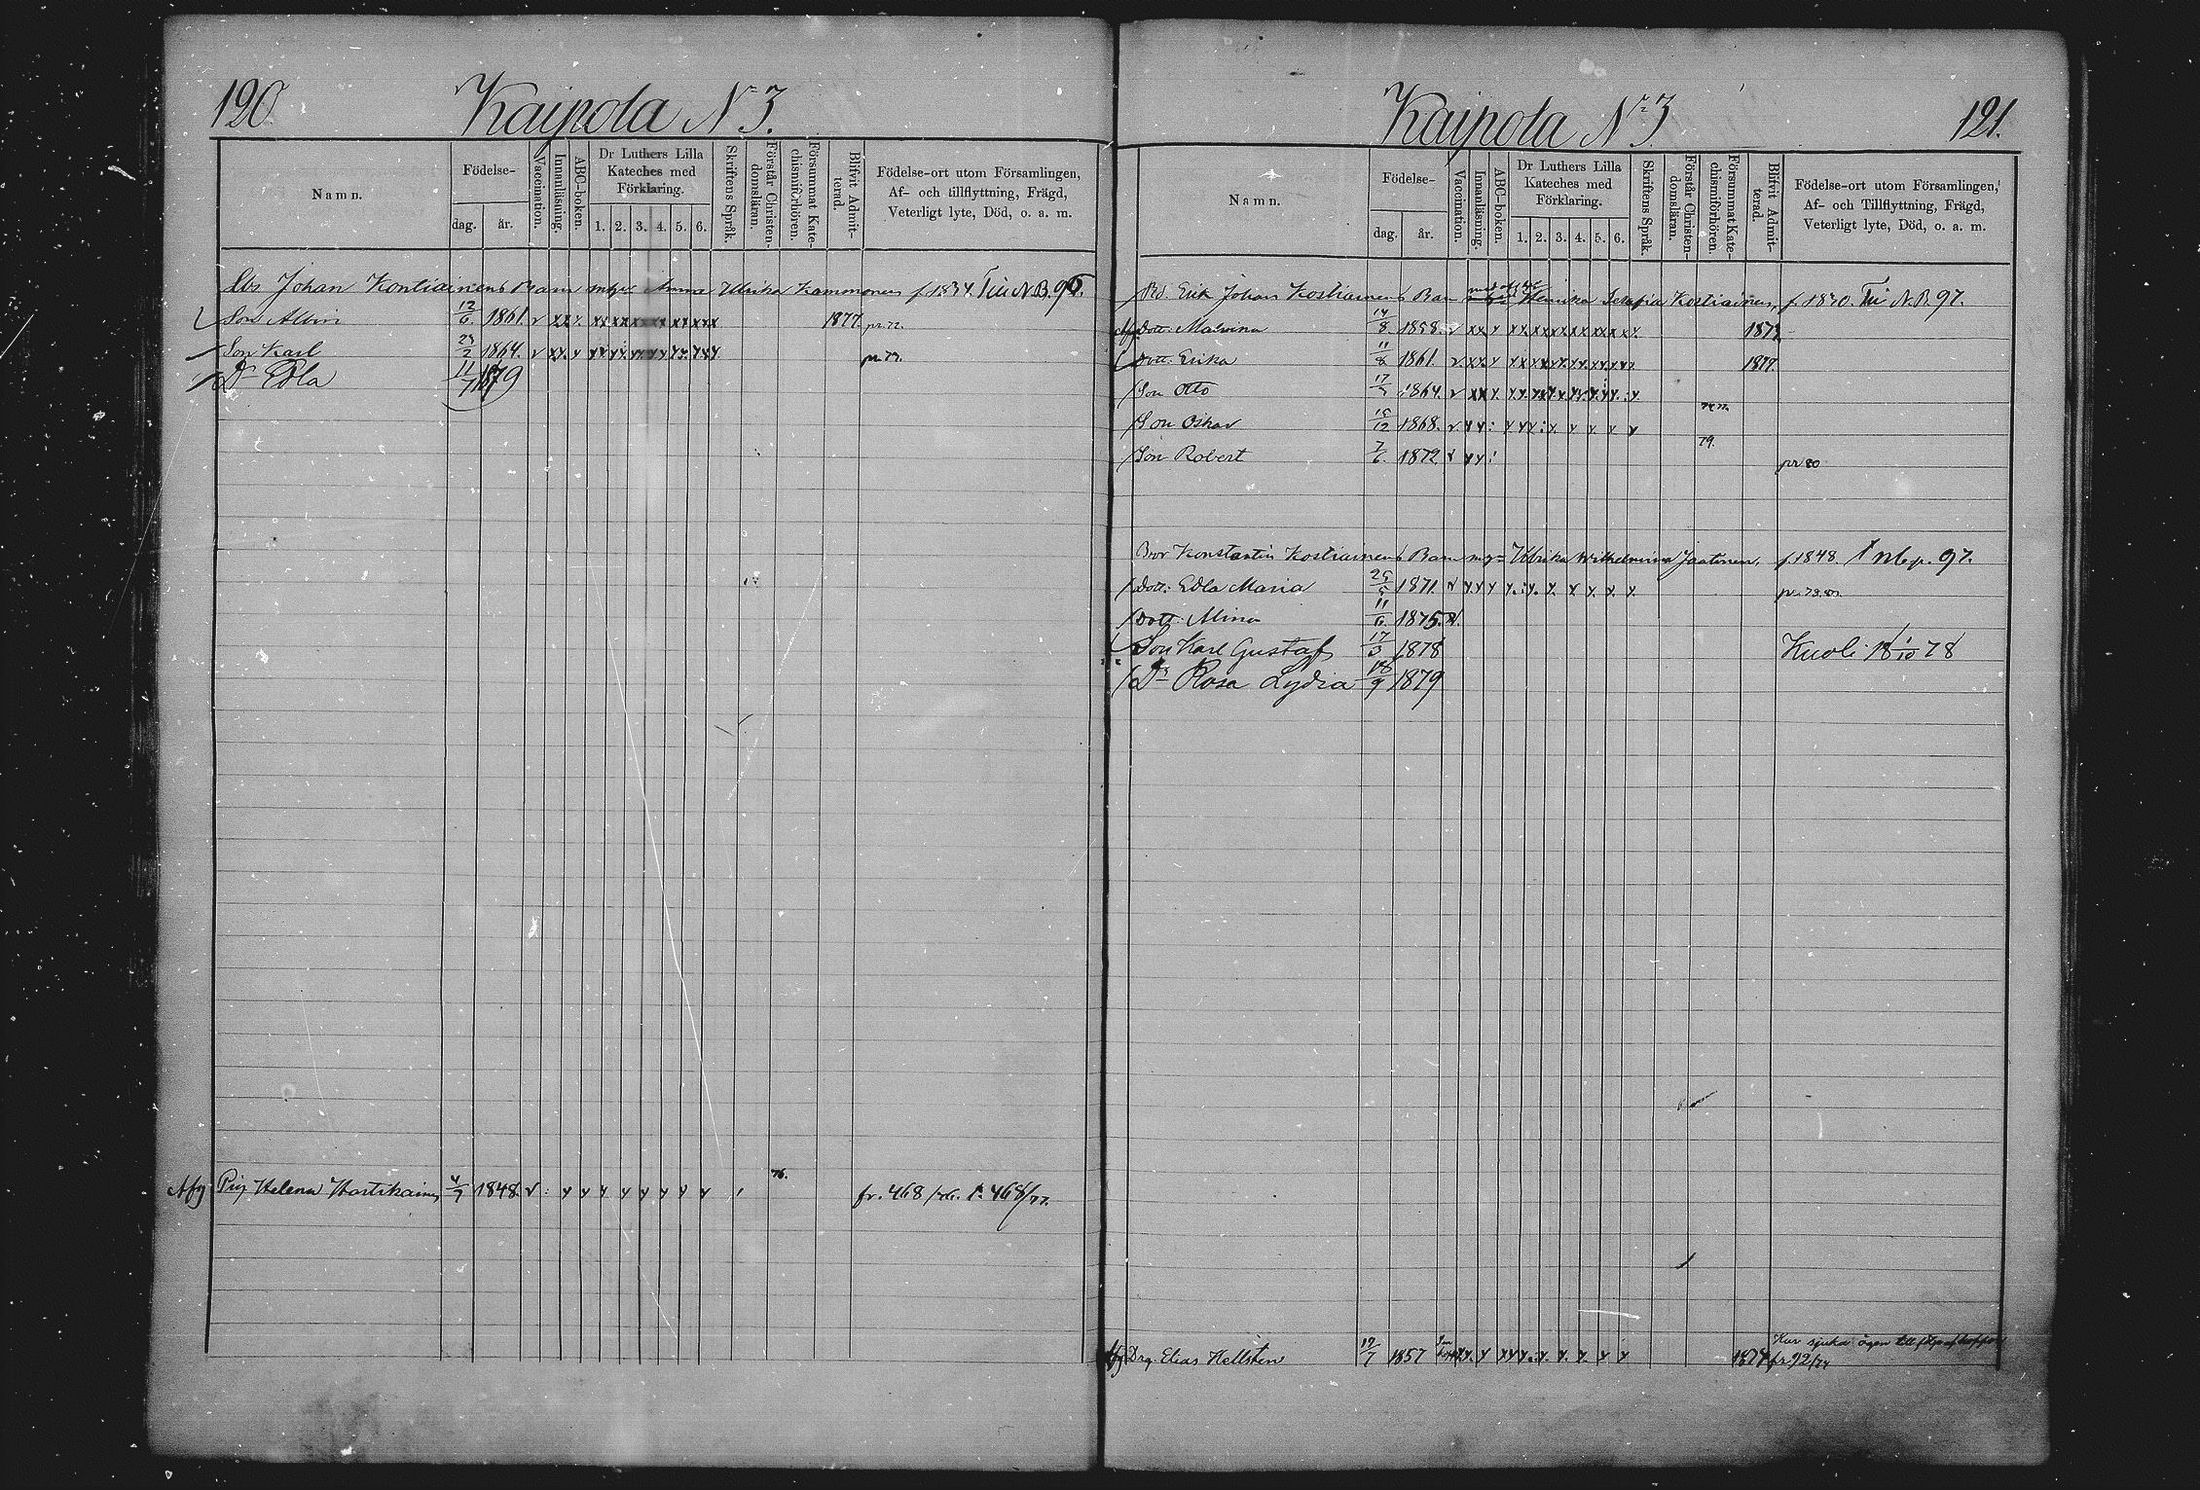 120
Kaipola No 3.
Namn.
Födelse-
dag.
år.
Vaccination.
Innanläsning.
ABC-boken.
Dr Luthers Lilla
Kateches med
Förklaring.
1. 2. 3. 4. 5. 6.
Skriftens Språk.
Förstår Christen-
domsläran.
Försummat Kate-
chismiförhören.
Blifvit Admit-
terad.
Födelse-ort utom Församlingen,
Af- och tillflyttning, Frägd,
Veterligt lyte, Död, o. a. m.
Johan Kontiainens Barn Anna Ulrika Kammonen f. 1834 N.B. 96.
Son Albin 12/6. 1861. v xx x. xx xx xx xx xx xx 1877. pr. 77.
Son Karl 24/2 1864. v xx. x pr. 79.
Dr Edla 11/7 1879
76.
Afg Pig Helena Hartikainen 4/7 1848 v : x x x x x x x x fr. 468/76. t. 468/77.
Kaipola No 3
121.
Namn.
Födelse-
dag.
år.
Vaccination.
Innanläsning.
ABC-boken.
Dr Luthers Lilla
Kateches med
Förklaring.
1. 2. 3. 4. 5. 6.
Skriftens Språk.
Förstår Christen-
domsläran.
Försummat Kate-
chismiförhören.
Blifvit Admit-
terad.
Födelse-ort utom Församlingen,
Af- och Tillflyttning, Frägd,
Veterligt lyte, Död, o. a. m.
Erik Johan Kostiainens Barn Henrika Serafia Kostiainen, f. 1830. N.B. 97.
Dott. Malvina 14/8. 1858. v xx x
Dott. Erika 11/8 1861. v xx. x 1877.
Son Otto 17/7 1864. v xx x.
Son Oskar 15/12 1868. v x x :
79.
Son Robert 7/6. 1872 v x x :
pr 80
Bror Konstantin Kostiainens Barn m. Ulrika Wilhelmina Jaatinen, f. 1848. p. 97.
Dott. Edla Maria 25/5 1871. v x x x
Dott. Mina 11/6. 1875. v.
Son Karl Gustaf 17/3 1878 Kuoli 18 1/10 78
Dr Rosa Lydia 18/9 1879
Drg. Elias Hellstén 19/7 1857 fr. 92/74
Har sjuka ögon